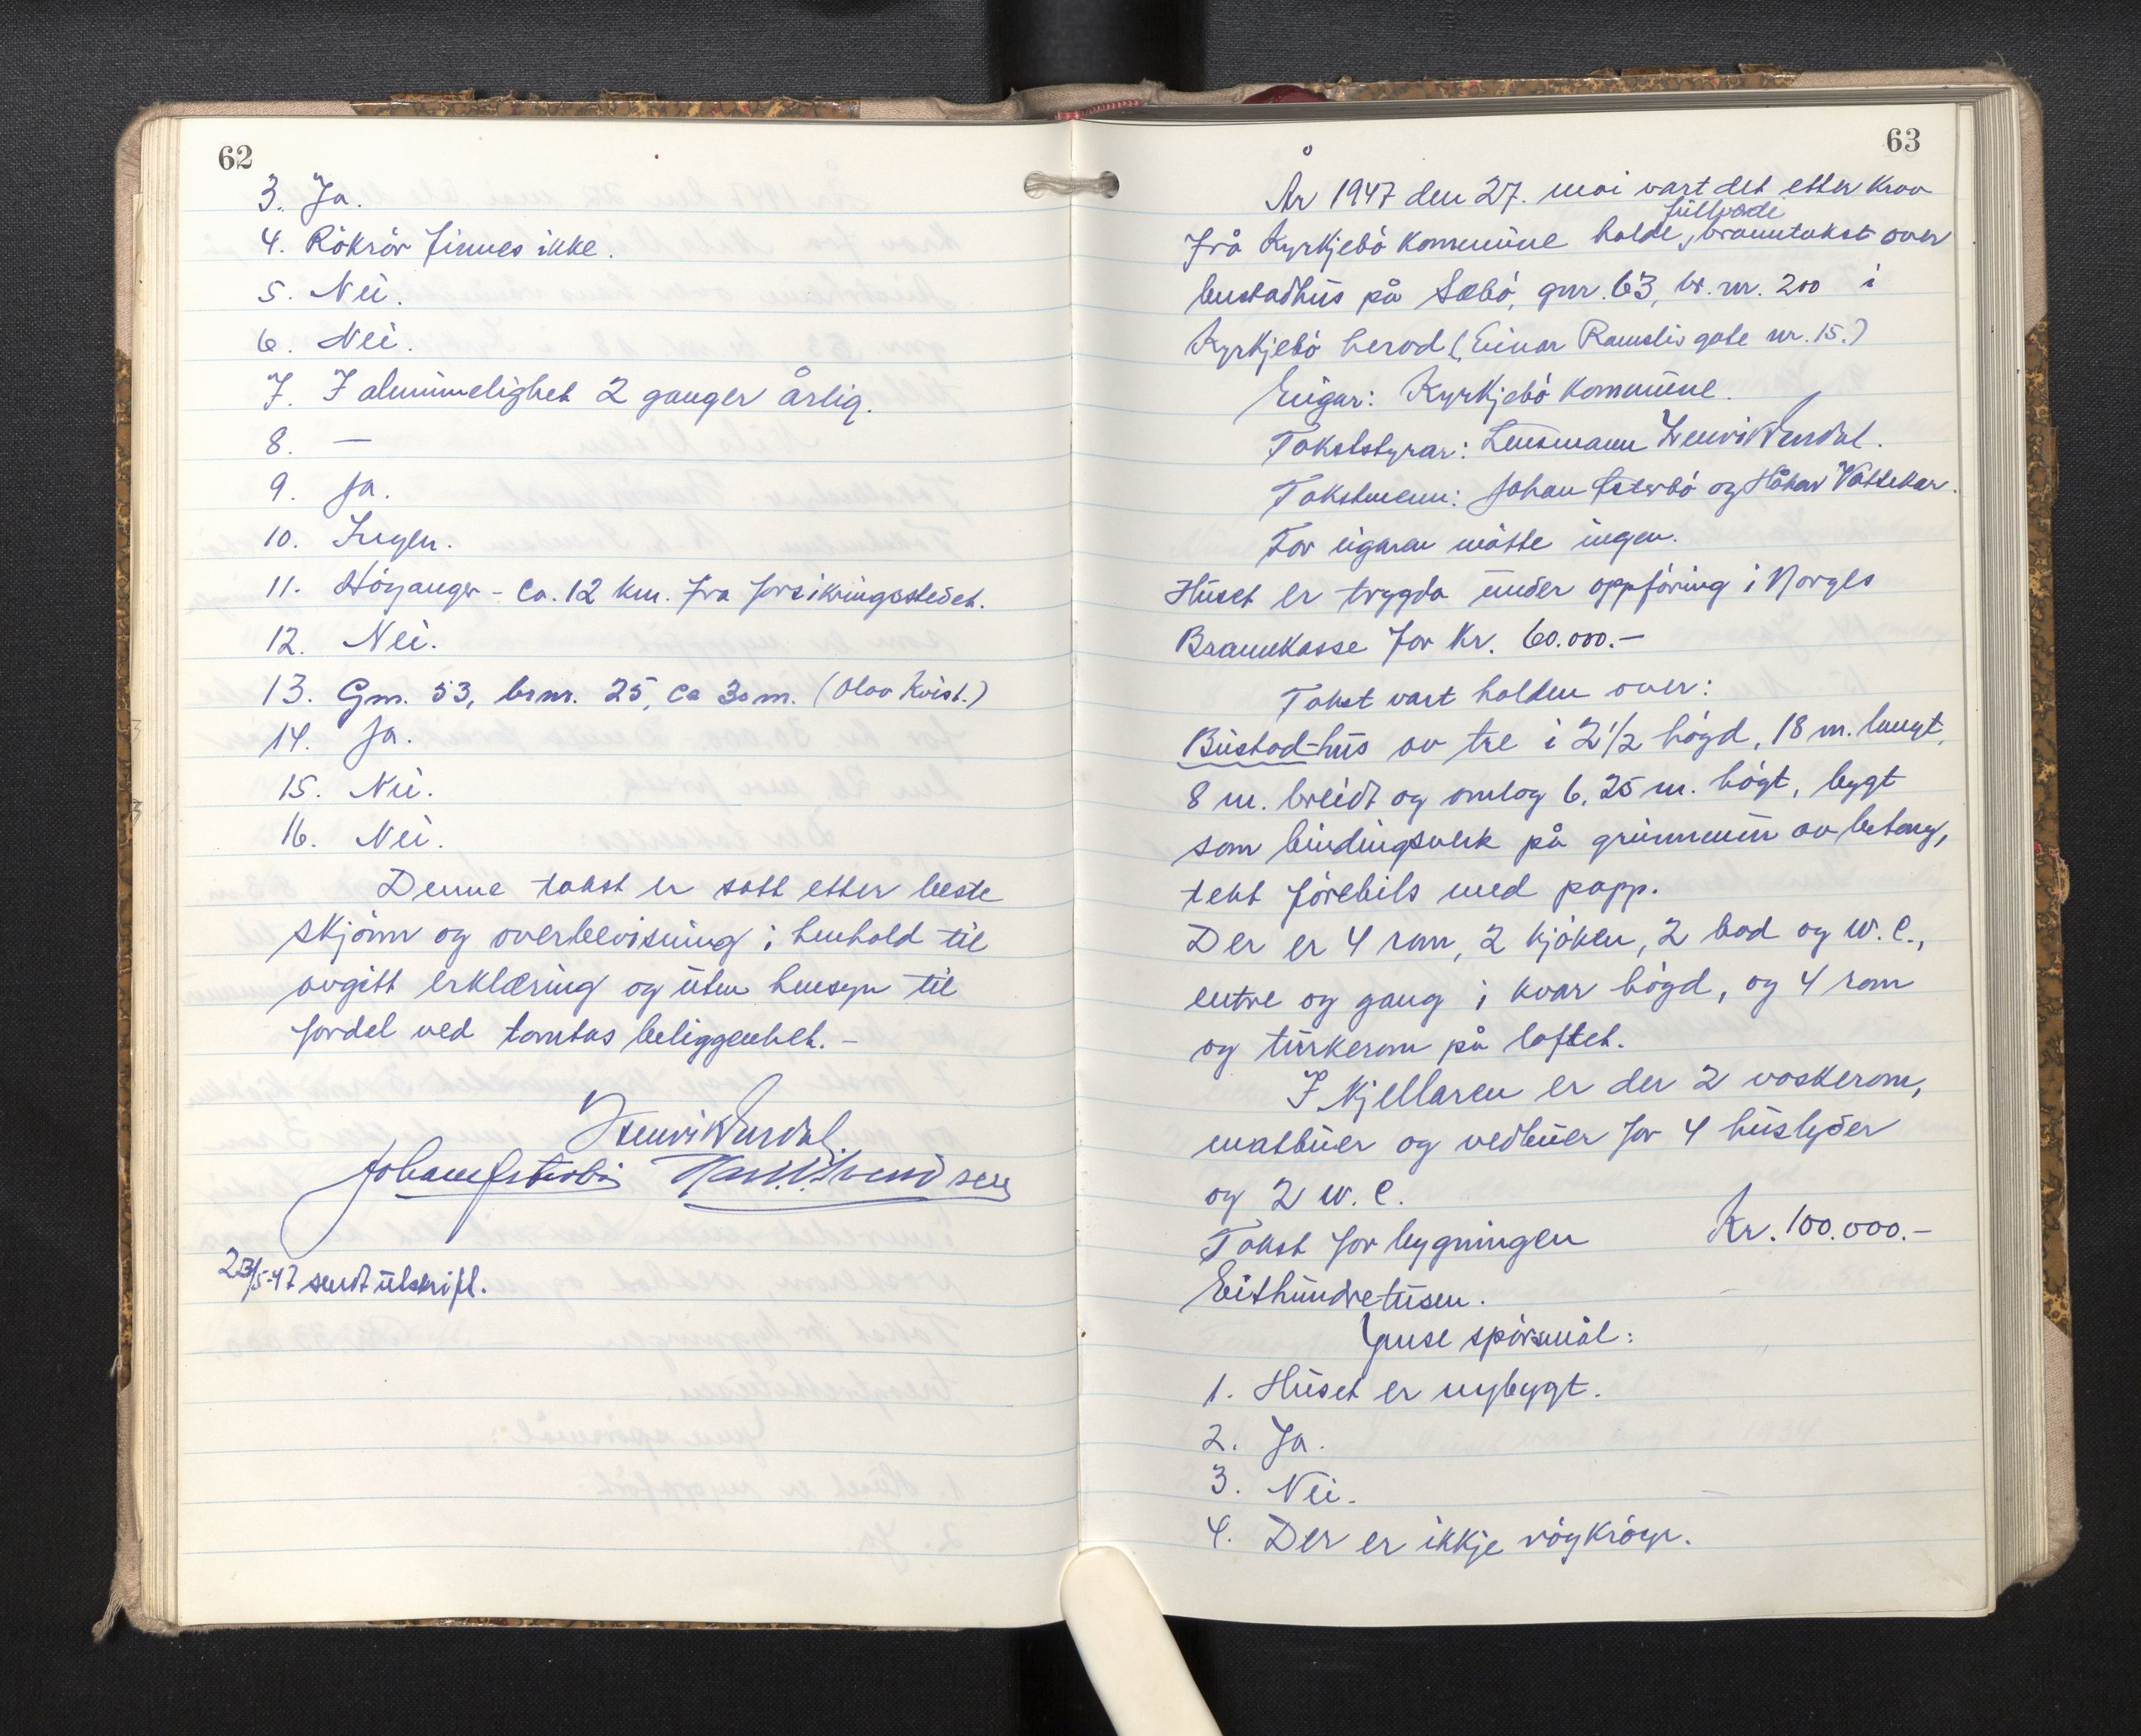 62
3. Ja.
4. Rökrör finnes ikke.
5. Nei.
6. Nei.
7. I almimmelighet 2 ganger årlig.
8. —
9. Ja.
10. Ingen.
11. Höyanger - ca. 12 km. fra forsikringsstedet.
12. Nei.
13. Gnr. 53, brnr. 25, ca 30 m. (Olav Kvist.)
14. Ja.
15. Nei.
16. Nei.
Denne takst er satt etter beste
skjönn og overbevisning i henhold til
avgitt erklæring og uten hensyn til
fordel ved tomtas beliggenhet. —
Henrik Wurdal
Johan Østerbö
23/5-47 sendt utskrift.
63
År 1947 den 27. mai vart det etter krav
frå Kyrkjebö kommune halde fullverdi branntakst over
bustadhus på Sæbö, gnr. 63, br. nr. 200 i
Kyrkjebö herad (Einar Ramslis gate nr. 15.)
Eigar: Kyrkjebö kommune.
Takststyrar: Lensmann Henrik Wurdal.
Takstmenn: Johan Østerbö og Håkon Våttekar.
For eigaren mötte ingen.
Huset er trygda under oppföring i Norges
Brannkasse for Kr. 60.000.—
Takst vart halden over:
Bustad-hus av tre i 2 1/2 högd, 18 m. langt,
8 m. breidt og omlag 6,25 m. högt, bygt
som bindingsverk på grunnmur av betong,
tekt förebils med papp.
Der er 4 rom, 2 kjöken, 2 bod og W.C.,
entre og gang i kvar högd, og 4 rom
og turkerom på loftet.
I kjellaren er der 2 vaskerom,
matbuer og vedbuer for 4 huslyder
og 2 W.C.
Takst for bygningen Kr. 100.000.—
Eithundretusen.
Ymse spörsmål:
1. Huset er nybygt.
2. Ja.
3. Nei.
4. Der er ikkje röykröyr.